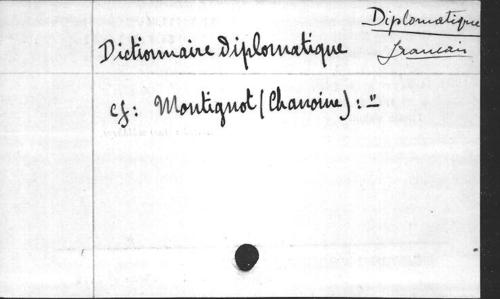 Diplomatique
francais
Dictionnaire diplomatique
cf: Montignot (Chanoine) : "